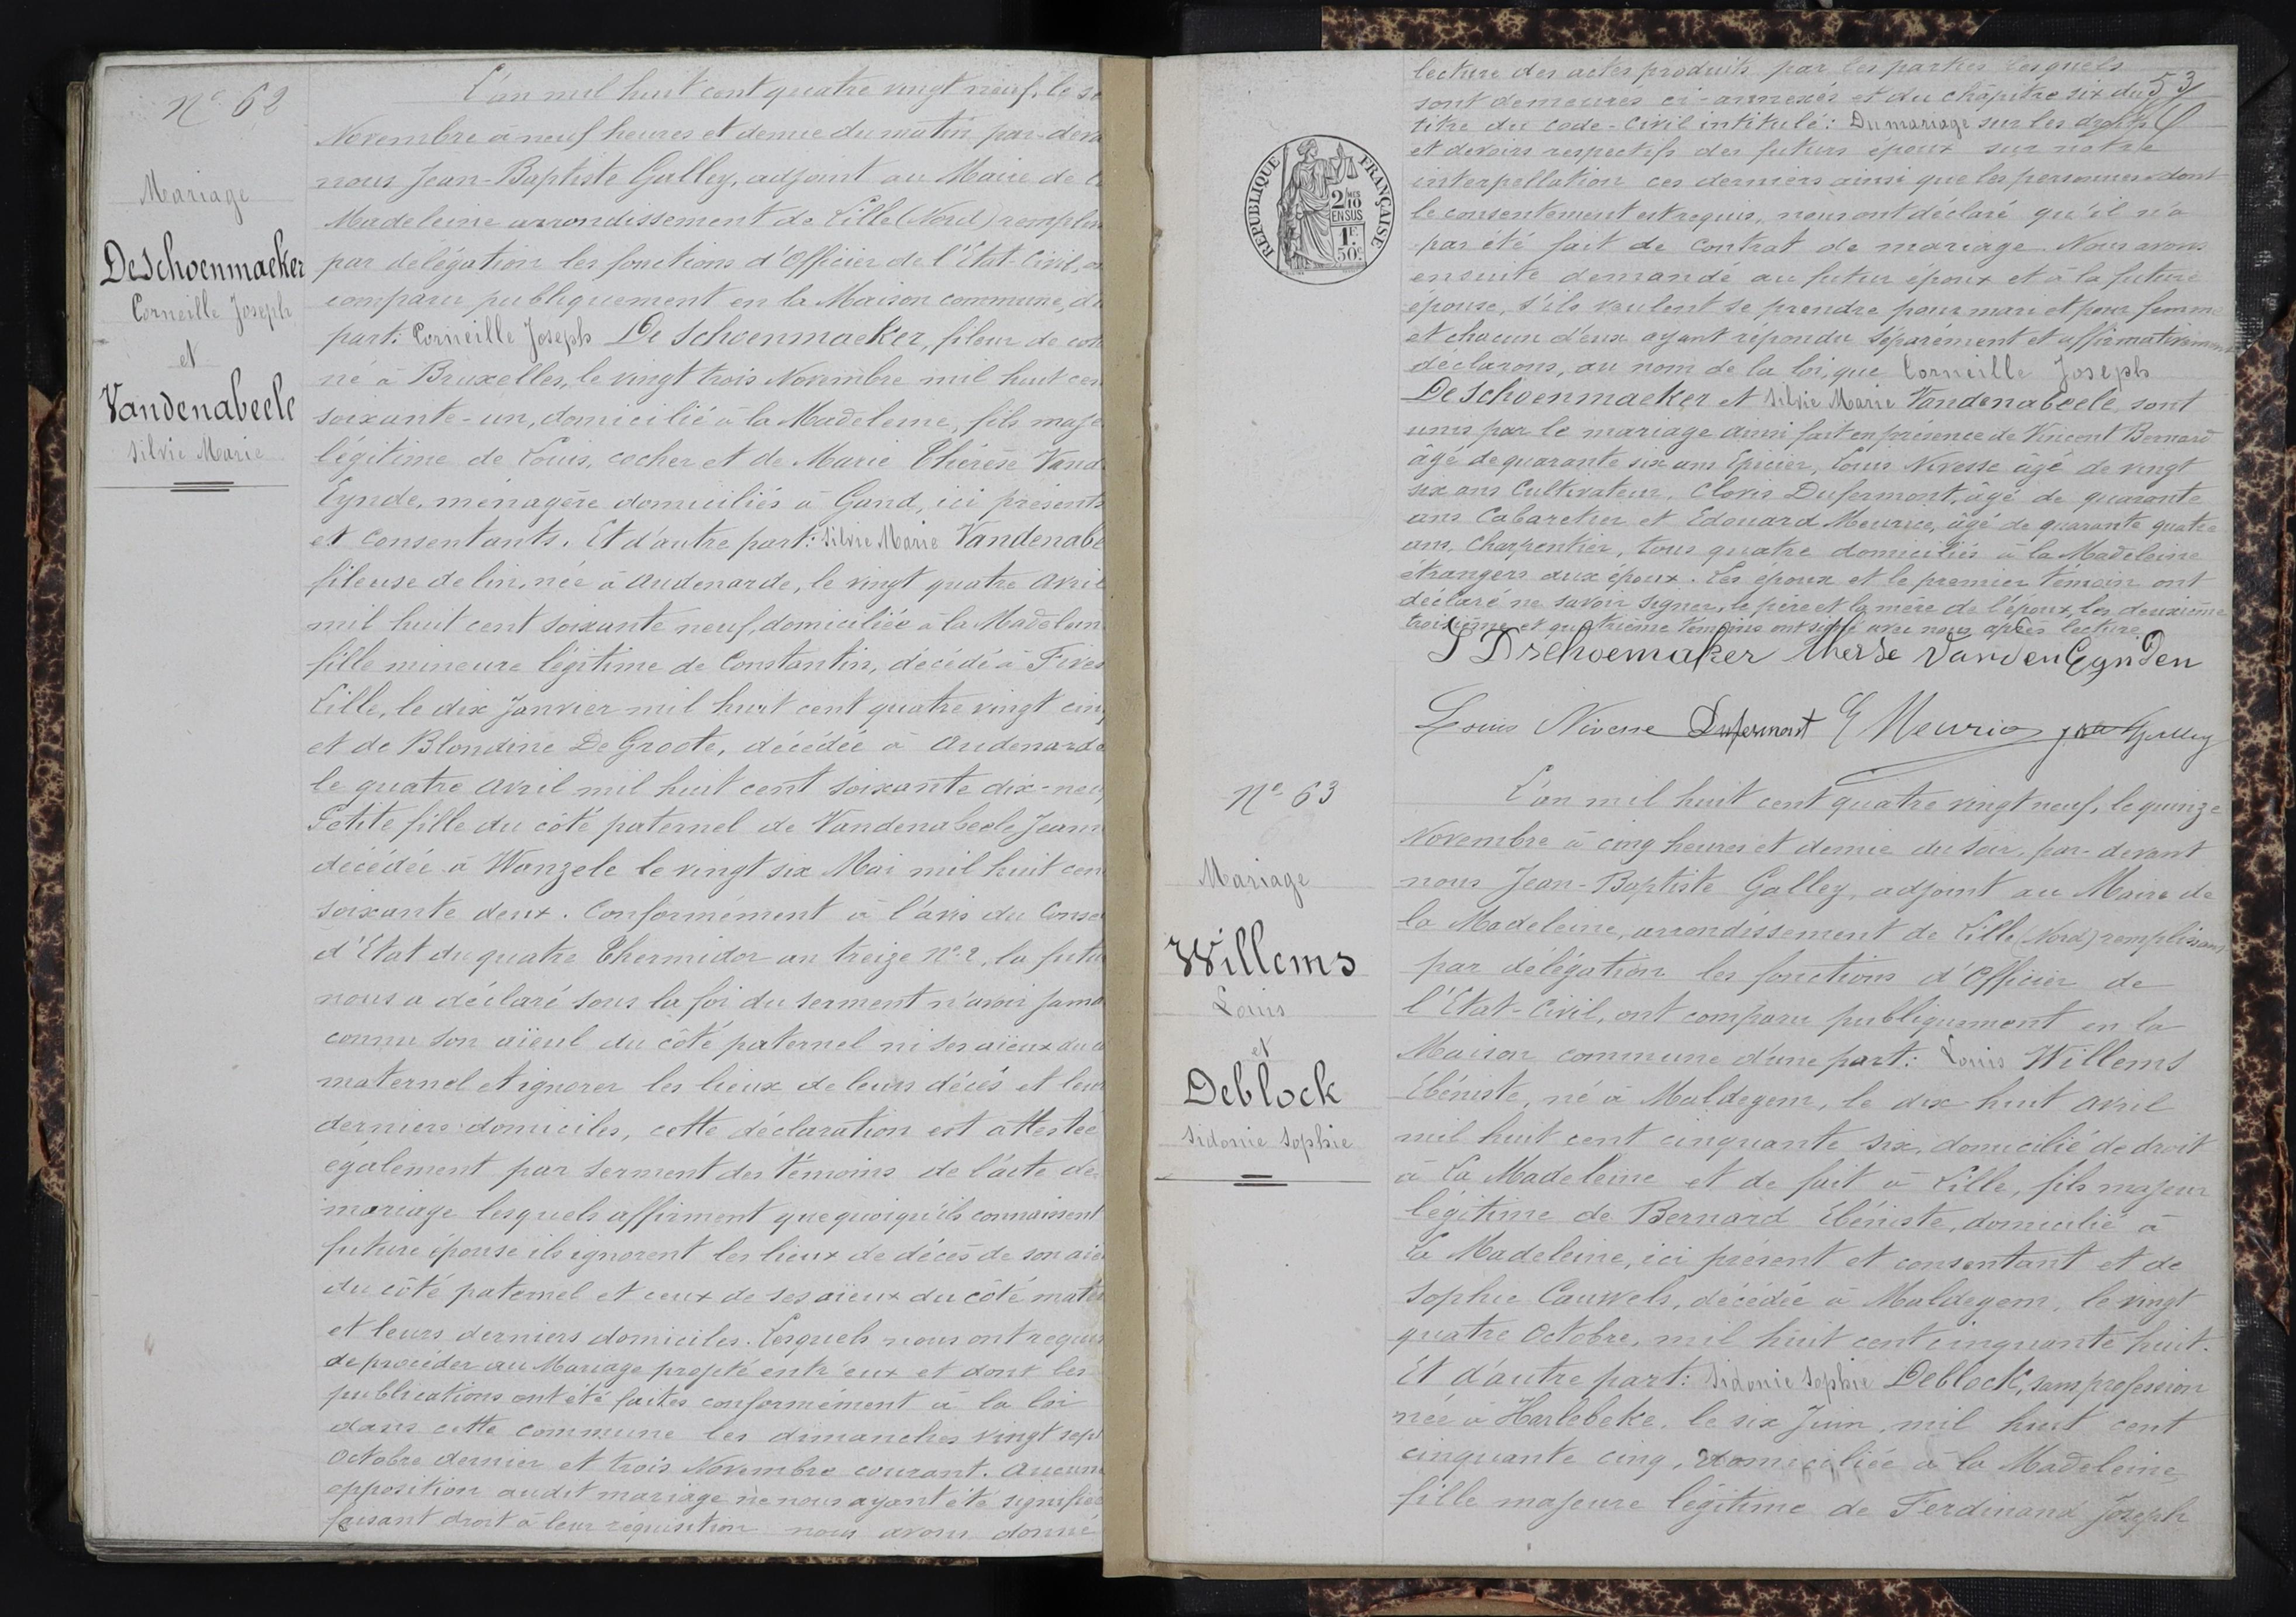 N° 62
Mariage
DeSchoenmaeker
Corneille Joseph
et
Vandenabeele
Silvie Marie
L'an mil huit cent quatre vingt neuf, le
Novembre à neuf heures et demie du matin, par-deva
nous Jean-Baptiste Galley, adjoint au Maire de
Madeleine arrondissement de Lille (Nord) remplis
par délégation les fonctions d'Officier de l'État-Civil, o
comparu publiquement en la Maison commune, d'u
part: Corneille Joseph De Schoenmaeker, fileur de cot
né à Bruxelles, le vingt trois Novembre mil huit cen
soixante-un, domicilié à la Madeleine, fils maje
légitime de Louis, cocher et de Marie Thérèse Vand
Eynde, ménagère domiciliés à Gand, ici présents
et consentants. Et d'autre part: Silvie Marie Vandenabe
fileuse de lin, née à Audenarde, le vingt quatre Avril
mil huit cent soixante neuf, domiciliée à la Madelein
fille mineure légitime de Constantin, décédé à Fives
Lille, le dix Janvier mil huit cent quatre vingt cinq
et de Blondine De Groote, décédée à Audenarde
le quatre Avril mil huit cent soixante dix-neu
Petite fille du côté paternel de Vandenabeele Jeann
décédée à Wanzele le vingt six Mai mil huit cen
soixante deux. Conformément à l'avis du Conse
d'Etat du quatre Thermidor an treize N° 2, la futu
nous a déclaré sous la foi du serment n'avoir jama
connu son aïeul du côté paternel ni ses aïeux du c
maternel et ignorer les lieux de leurs décès et leur
derniers domiciles, cette déclaration est attestée
également par serment des témoins de l'acte de
mariage lesquels affirment que quoiqu'ils connaissent
future épouse ils ignorent les lieux de décès de son aie
du côté paternel et ceux de ses aïeux du côté mate
et leurs derniers domiciles. Lesquels nous ont requis
de procéder au Mariage projeté entr'eux et dont les
publications ont été faites conformément à la loi
dans cette commune les dimanches vingt sept
Octobre dernier et trois Novembre courant. Aucune
opposition audit mariage ne nous ayant été signifiée
faisant droit à leur réquisition nous avons donné
53
lecture des actes produits par les parties lesquels
sont demeurés ci-annexés et du chapitre six du
titre du code-civil intitulé: Du mariage sur les droits
et devoirs respectifs des futurs époux sur notre
interpellation ces derniers ainsi que les personnes dont
le consentement est requis, nous ont déclaré qu'il n'a
pas été fait de contrat de mariage. Nous avons
ensuite demandé au futur époux et à la future
épouse, s'ils veulent se prendre pour mari et pour femme
et chacun d'eux ayant répondu séparément et affirmativement
déclarons, au nom de la loi, que Corneille Joseph
De Schoenmaeker et Silvie Marie Vandenabeele sont
unis par le mariage ainsi fait en présence de Vincent Bernard
âgé de quarante six ans Epicier, Louis Nivesse âgé de vingt
six ans Cultivateur, Clovis Dufermont, âgé de quarante
ans Cabaretier et Edouard Meurice, âgé de quarante quatre
ans, Charpentier, tous quatre domiciliés à la Madeleine
étrangers aux époux. Les époux et le premier témoin ont
déclaré ne savoir signer, le père et la mère de l'époux, les deuxième
troisième et quatrième témoins ont signé avec nous après lecture.
Dschoemaker therse Vanden Eynden
Louis Nivesse Dufermont E Meurice Galley
RÉPUBLIQUE FRANÇAISE
2/10 MES
EN SUS
1F.
50c
N° 63
Mariage
Willems
Louis
et
Deblock
Sidonie Sophie
L'an mil huit cent quatre vingt neuf, le quinze
Novembre à cinq heures et demie du soir, par-devant
nous Jean-Baptiste Galley, adjoint au Maire de
la Madeleine, arrondissement de Lille (Nord) remplissant
par délégation les fonctions d'Officier de
l'Etat-Civil, ont comparu publiquement en la
Maison commune d'une part: Louis Willems
Ebéniste, né à Maldegem, le dix-huit Avril
mil huit cent cinquante six, domicilié de droit
à La Madeleine et de fait à Lille, fils majeur
légitime de Bernard Ebéniste, domicilié à
La Madeleine, ici présent et consentant et de
Sophie Cauwels, décédée à Maldegem, le vingt
quatre Octobre, mil huit cent cinquante huit.
Et d'autre part: Sidonie Sophie Deblock, sans profession
née à Harlebeke, le six Juin, mil huit cent
cinquante cinq, domiciliée à la Madeleine
fille majeure légitime de Ferdinand Joseph